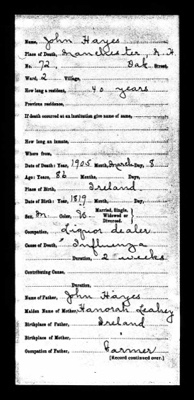 Name, John Hayes
Place of Death, Manchester, N. H.
No. 72, Oak Street,
Ward, 2 Village,
How long a resident, 40 years
Previous residence,
If death occurred at an institution give name of same,
How long an inmate,
Where from,
Date of Death: Year, 1905 Month, March Day, 8
Age: Years, 86 Months, Days,
Place of Birth, Ireland.
Date of Birth: Year, 1819 Month, Day,
Sex, M. Color, W. Married, Single, Widowed or Divorced.
Occupation, Liquor dealer
Cause of Death, Influenza
Duration, 2 weeks
Contributing Cause,
Duration,
Name of Father, John Hayes
Maiden Name of Mother, Hanorah Leahey
Birthplace of Father, Ireland
Birthplace of Mother, "
Occupation of Father, Farmer
(Record continued over.)